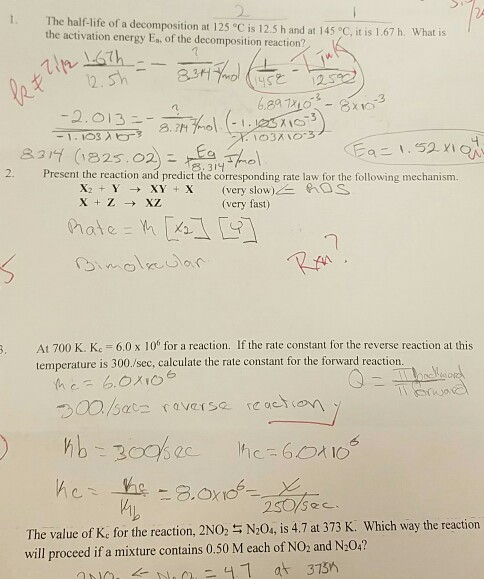 2 1
1. The half-life of a decomposition at 125 °C is 12.5 h and at 145 °C, it is 1.67 h. What is
the activation energy Eₐ, of the decomposition reaction?
1.67h / 12.5h = - ? / 8.314 J/mol (1/145°C - 1/125°C) T in K
6.897x10⁻³ - 8x10⁻³
-2.013 = - ? / 8.314 J/mol (-1.103x10⁻³)
-1.103x10⁻³ -1.103x10⁻³
8.314 (1825.02) = Ea / 8.314 J/mol Ea = 1.52x10⁴
2. Present the reaction and predict the corresponding rate law for the following mechanism.
X₂ + Y → XY + X (very slow) ⇐ RDS
X + Z → XZ (very fast)
Rate = k [X₂] [Y]
Bimolecular Rxn?
3. At 700 K. Kc = 6.0 x 10⁶ for a reaction. If the rate constant for the reverse reaction at this
temperature is 300./sec, calculate the rate constant for the forward reaction.
Kc = 6.0x10⁶ Q = π backward / π forward
300./sec = reverse reaction
Kb = 300/sec Kc = 6.0x10⁶
Kc = / Kb = 8.0x10⁶ = X / 250/sec.
The value of Kc for the reaction, 2NO₂ ⇆ N₂O₄, is 4.7 at 373 K. Which way the reaction
will proceed if a mixture contains 0.50 M each of NO₂ and N₂O₄?
= 4.7 at 373K